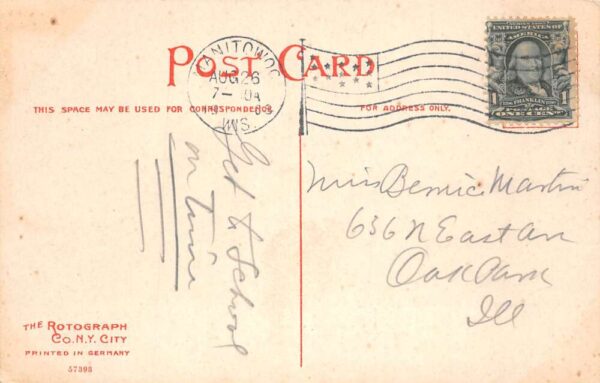 POST CARD
MANITOWOC
AUG 26
7-
WIS.
UNITED STATES OF
AMERICA
1
FRANKLIN
1
ONE CENT
THIS SPACE MAY BE USED FOR CORRESPONDENCE
FOR ADDRESS ONLY.
Get to School
on Time
Miss Bernice Martin
636 N East Av
Oak Park
Ill
THE ROTOGRAPH
CO. N.Y. CITY
PRINTED IN GERMANY
57393